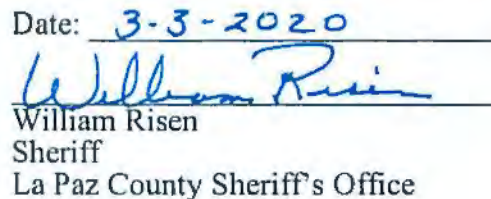 Date: 3-3-2020
William Risen
William Risen
Sheriff
La Paz County Sheriff's Office